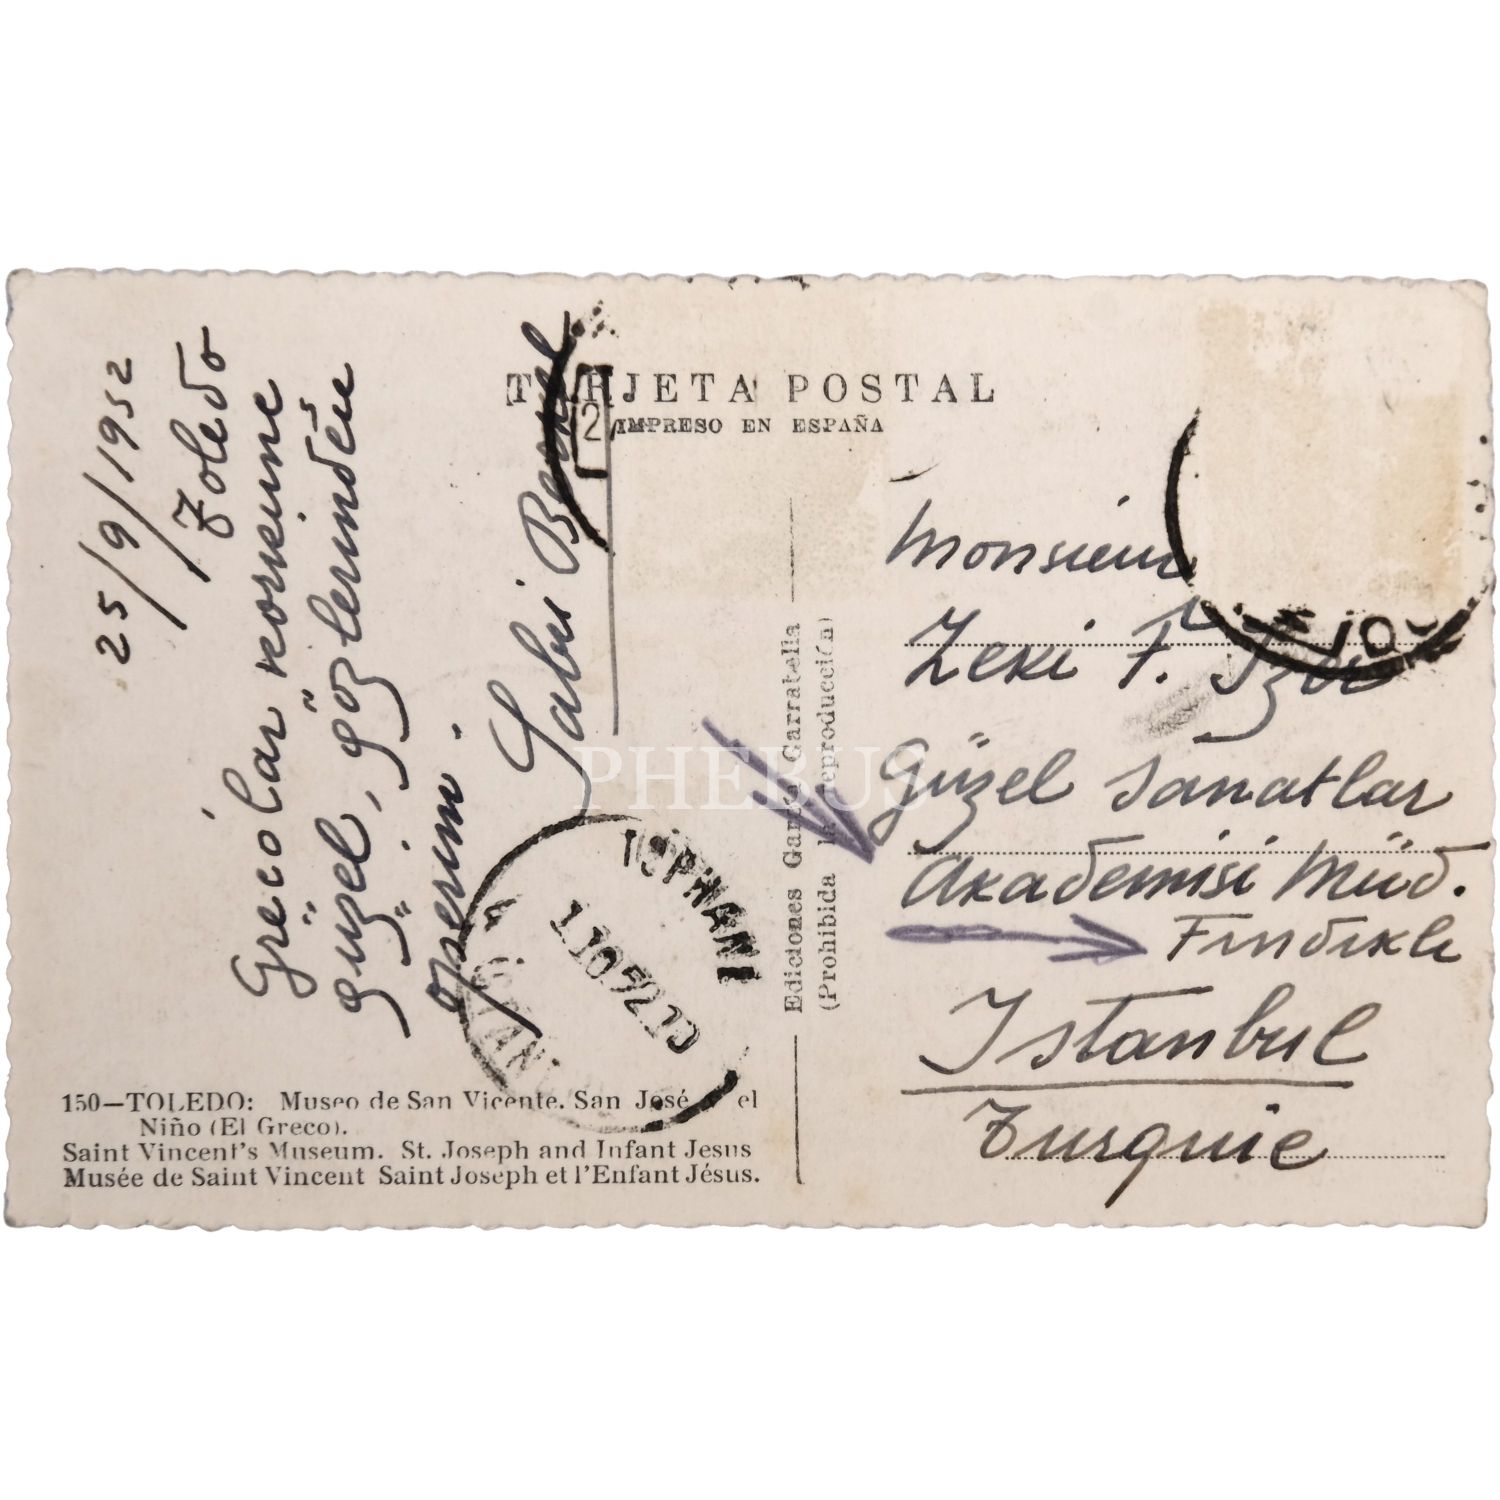 25/9/1952
Toledo
Grecolar
güzel, gözlerinden
öperim.
Sabri Berkel
TARJETA POSTAL
IMPRESO EN ESPAÑA
2
Monsieur
Zeki F. Izer
Güzel Sanatlar
Akademisi Müd.
Fındıklı
Istanbul
Turquie
Ediciones García Garrabella
(Prohibida la reproducción)
PHEBUS
1.10.52.10
150—TOLEDO: Museo de San Vicente. San José y el
Niño (El Greco).
Saint Vincent's Museum. St. Joseph and Infant Jesus
Musée de Saint Vincent Saint Joseph et l'Enfant Jésus.